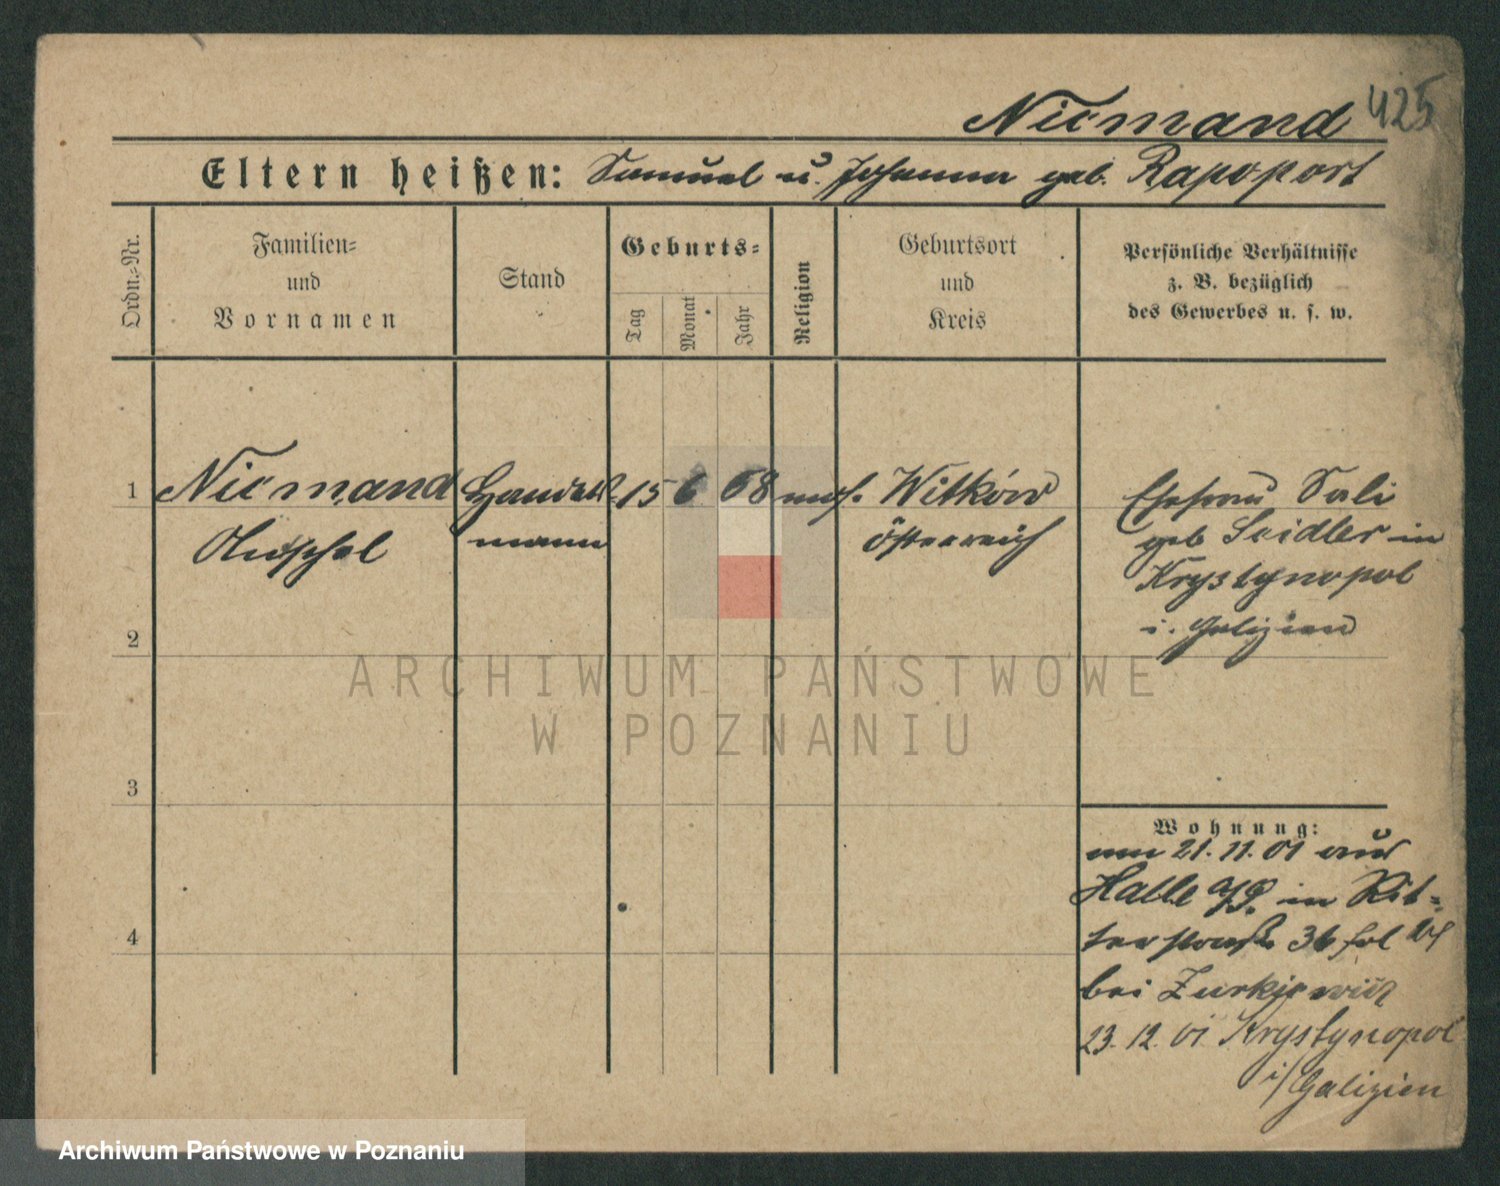 Niemand 425
Eltern heißen: Samuel u. Johanna geb. Rapoport
Ordn.-Nr.
Familien-
und
Vornamen
Stand
Geburts-
Tag
Monat
Jahr
Religion
Geburtsort
und
Kreis
Persönliche Verhältnisse
z. B. bezüglich
des Gewerbes u. s. w.
1 Niemand Handels- 15 6 68 mos. Witków
mann Österreich
Ehefrau Sali
geb Seidler in
Krystynopol
i. Galizien
2
3
4
Wohnung:
am 21.11.01 aus
Halle a/S. in Rit-
terstraße 36
bei Zurkiewicz
23.12.01 Krystynopol
i/Galizien
ARCHIWUM PAŃSTWOWE
W POZNANIU
Archiwum Państwowe w Poznaniu